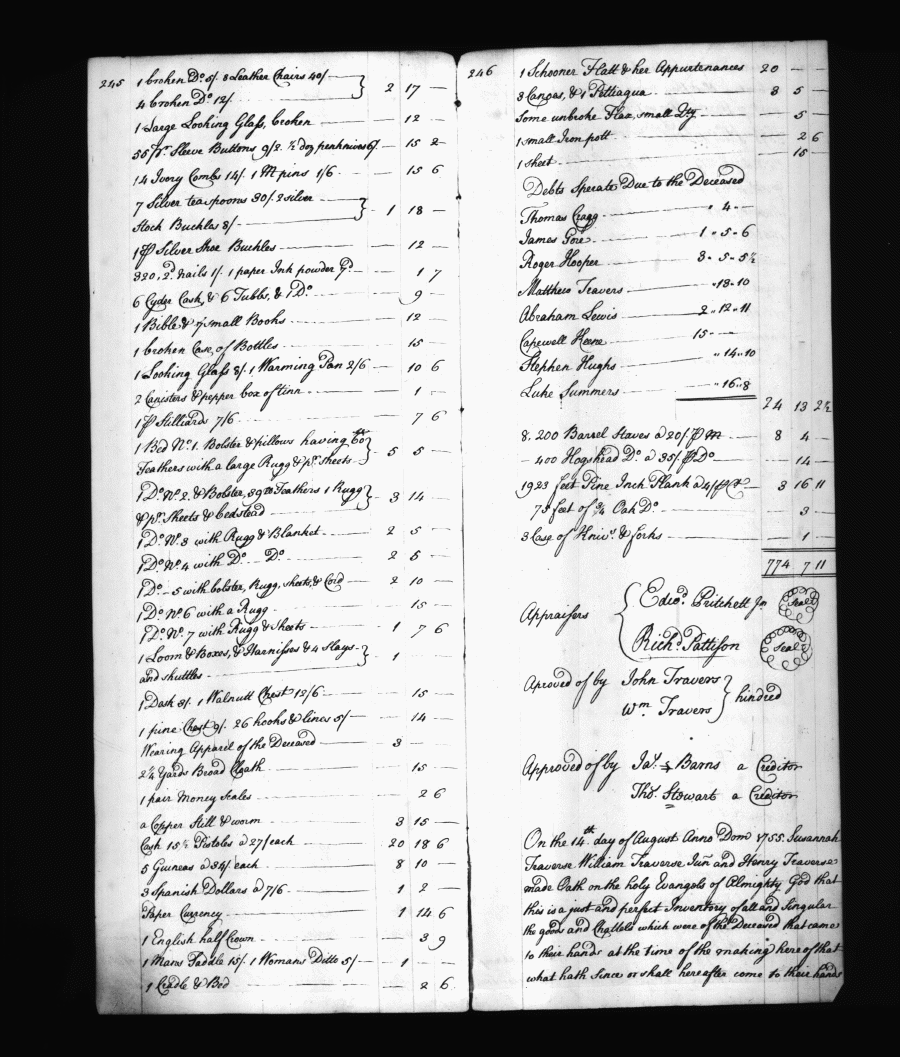 245
1 broken Do. 5/. 8 Leather Chairs 40/ 2 17 —
4 broken Do. 12/.
1 Large Looking Glass, broken — 12 —
55 pr. Sleeve Buttons 9/2. ½ doz penknives 6/ — 15 2
14 Ivory Combs 14/. 1 M pins 1/6 — 15 6
7 Silver teaspoons 30/. 2 silver 1 18 —
Stock Buckles 8/
1 pr Silver Shoe Buckles — 12 —
320, 2d. nails 1/. 1 paper Ink powder 7d. 1 7
6 Cyder Cask, & 6 Tubbs, & 1 Do. 9 —
1 Bible & 7 small Books 12 —
1 broken Case, of Bottles 15 —
1 Looking Glass 8/. 1 Warming Pan 2/6 10 6
2 Canisters & pepper box of tinn 1 —
1 pr Stilliards 7/6 7 6
1 Bed No. 1. Bolster & pillows having 60 lb 5 5 —
Feathers with a large Rugg & pr. Sheets
1 Do. No. 2. & Bolster, 39 lb Feathers 1 Rugg 3 14 —
& pr. Sheets & bedstead
1 Do. No. 3 with Rugg & Blanket 2 5 —
1 Do. No. 4 with Do. Do. 2 5 —
1 Do. — 5 with bolster, Rugg, sheets, & Cord 2 10 —
1 Do. No. 6 with a Rugg 15 —
1 Do. No. 7 with Rugg & Sheets 1 7 6
1 Loom & Boxes, & Harnisses & 4 Slays 1 — —
and shuttles
1 Desk 3/. 1 Walnutt Chest 12/6 — 15 —
1 pine Chest 9/. 26 hooks & lines 5/ — 14 —
Wearing Apparel of the Deceased 3 —
2¼ Yards Broad Cloath 15 —
1 pair Money Scales 2 6
a Copper Still & worm 3 15 —
Cash 15½ Pistoles a 27/ each 20 18 6
5 Guineas a 34/. each 8 10 —
3 Spanish Dollars a 7/6 1 2 —
Paper Currency 1 14 6
1 English half Crown 3 9
1 Mans Saddle 15/. 1 Womans Ditto 5/ 1 —
1 Cradle & Bed 2 6
246
1 Schooner Flatt & her Appurtenances 20 — —
3 Canoas, & 1 Pettiagua 8 5 —
Some unbroke Flax, small Qty. — 5 —
1 small Iron pott — 2 6
1 sheet — 15 —
Debts Sperate Due to the Deceased
Thomas Cragg " 4 —
James Gore 1 " 5 " 6
Roger Hooper 3 " 5 " 5½
Matthew Travers " 18 " 10
Abraham Lewis 2 " 12 " 11
Capewell Keene 15 " —
Stephen Hughs " 14 " 10
Luke Summers " 16 " 8
24 13 2½
8,200 Barrel Staves a 20/. p M 8 4 —
— 400 Hogshead Do. a 35/. p Do. — 14 —
1923 feet Pine Inch Plank a 4/ p C 3 16 11
75 feet of ¾ Oak Do. — 3 —
3 Case of Knivs. & forks — 1 —
774 7 11
Appraisers { Edwd. Pritchett Jr. (Seal)
Richd. Pattison (Seal)
Aproved of by John Travers
Wm. Travers } kindred
Approved of by Jas. Barns a Creditor
Thos. Stewart a Creditor
On the 14th day of August Anno Dom 1755. Susannah
Traverse William Traverse Junr and Henry Traverse
made Oath on the holy Evangels of Almighty God that
this is a just and perfect Inventory of all and Singular
the goods and Chattels which were of the Deceased that came
to their hands at the time of the making hereof that
what hath since or shall hereafter come to their hands